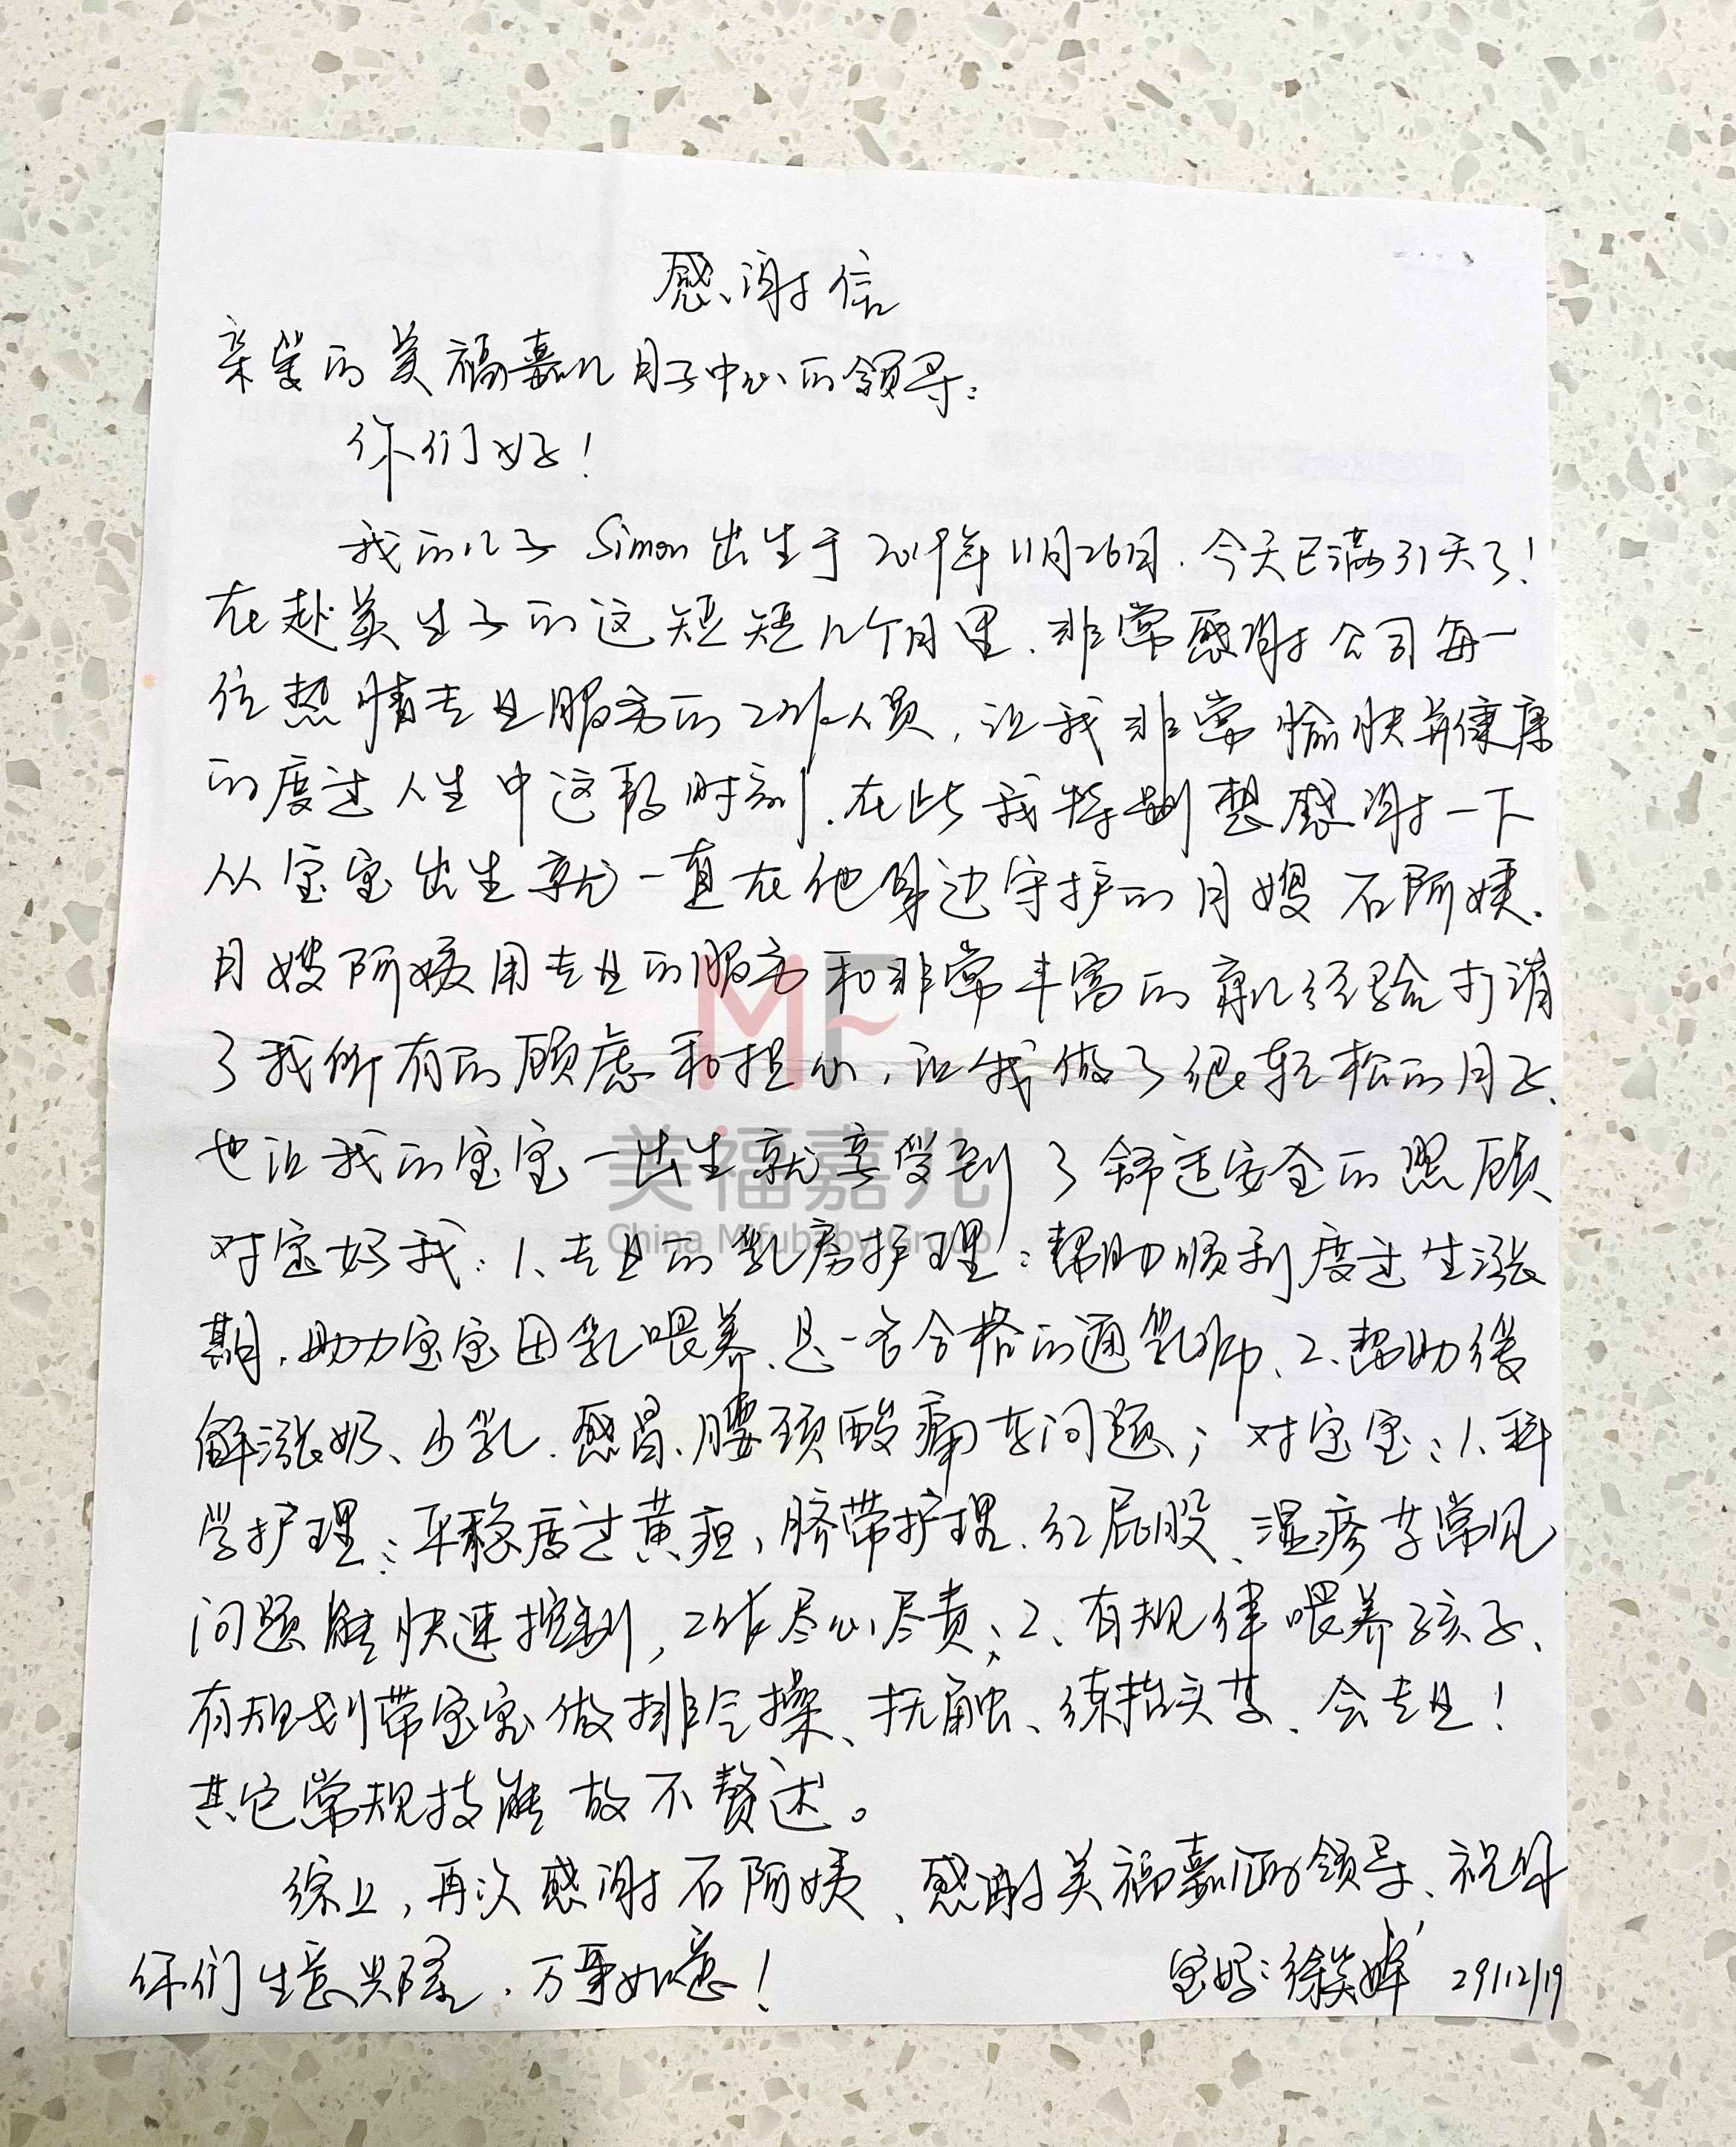 感谢信
亲爱的美福嘉儿月子中心的领导：
你们好！
我的儿子 Simon 出生于 2019年 11月26日．今天已满31天了！
在赴美生子的这短短几个月里、非常感谢公司每一
位热情专业服务的工作人员，让我非常愉快并健康
的度过人生中这段时刻．在此我特别想感谢一下
从宝宝出生就一直在他身边守护的月嫂石阿姨．
月嫂阿姨用专业的服务和非常丰富的育儿经验打消
了我所有的顾虑和担心，让我做了很轻松的月子、
也让我的宝宝一出生就享受到了舒适安全的照顾
对宝妈我：1、专业的乳房护理：帮助顺利度过生涨
期．助力宝宝母乳喂养、是一名合格的通乳师、2、帮助缓
解涨奶、少乳．感冒、腰颈酸痛等问题；对宝宝：1、科
学护理：平稳度过黄疸、脐带护理．红屁股、湿疹等常见
问题能快速控制，工作尽心尽责；2、有规律喂养孩子、
有规划带宝宝做排气操、抚触、练抬头等、会专业！
其它常规技能故不赘述。
综上，再次感谢石阿姨、感谢美福嘉儿的领导、祝
你们生意兴隆．万事如意！ 宝妈： 29/12/19
MF
美福嘉儿
China Mifubaby Group